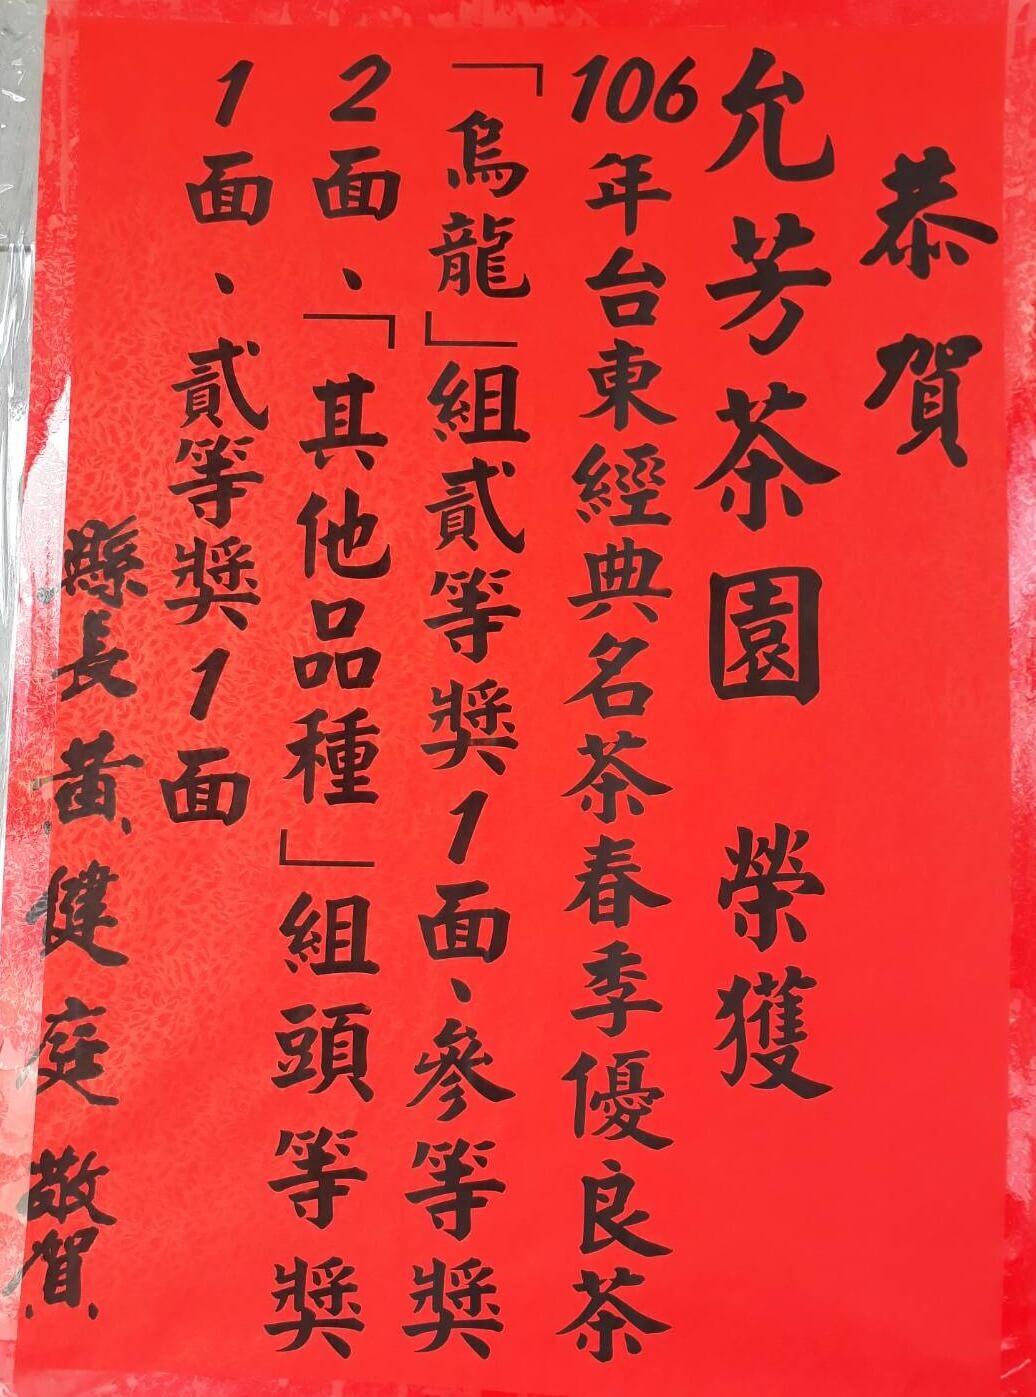 恭賀
允芳茶園 榮獲
106年台東經典名茶春季優良茶
「烏龍」組貳等獎1面、參等獎
2面、「其他品種」組頭等獎
1面、貳等獎1面
縣長 黃健庭 敬賀